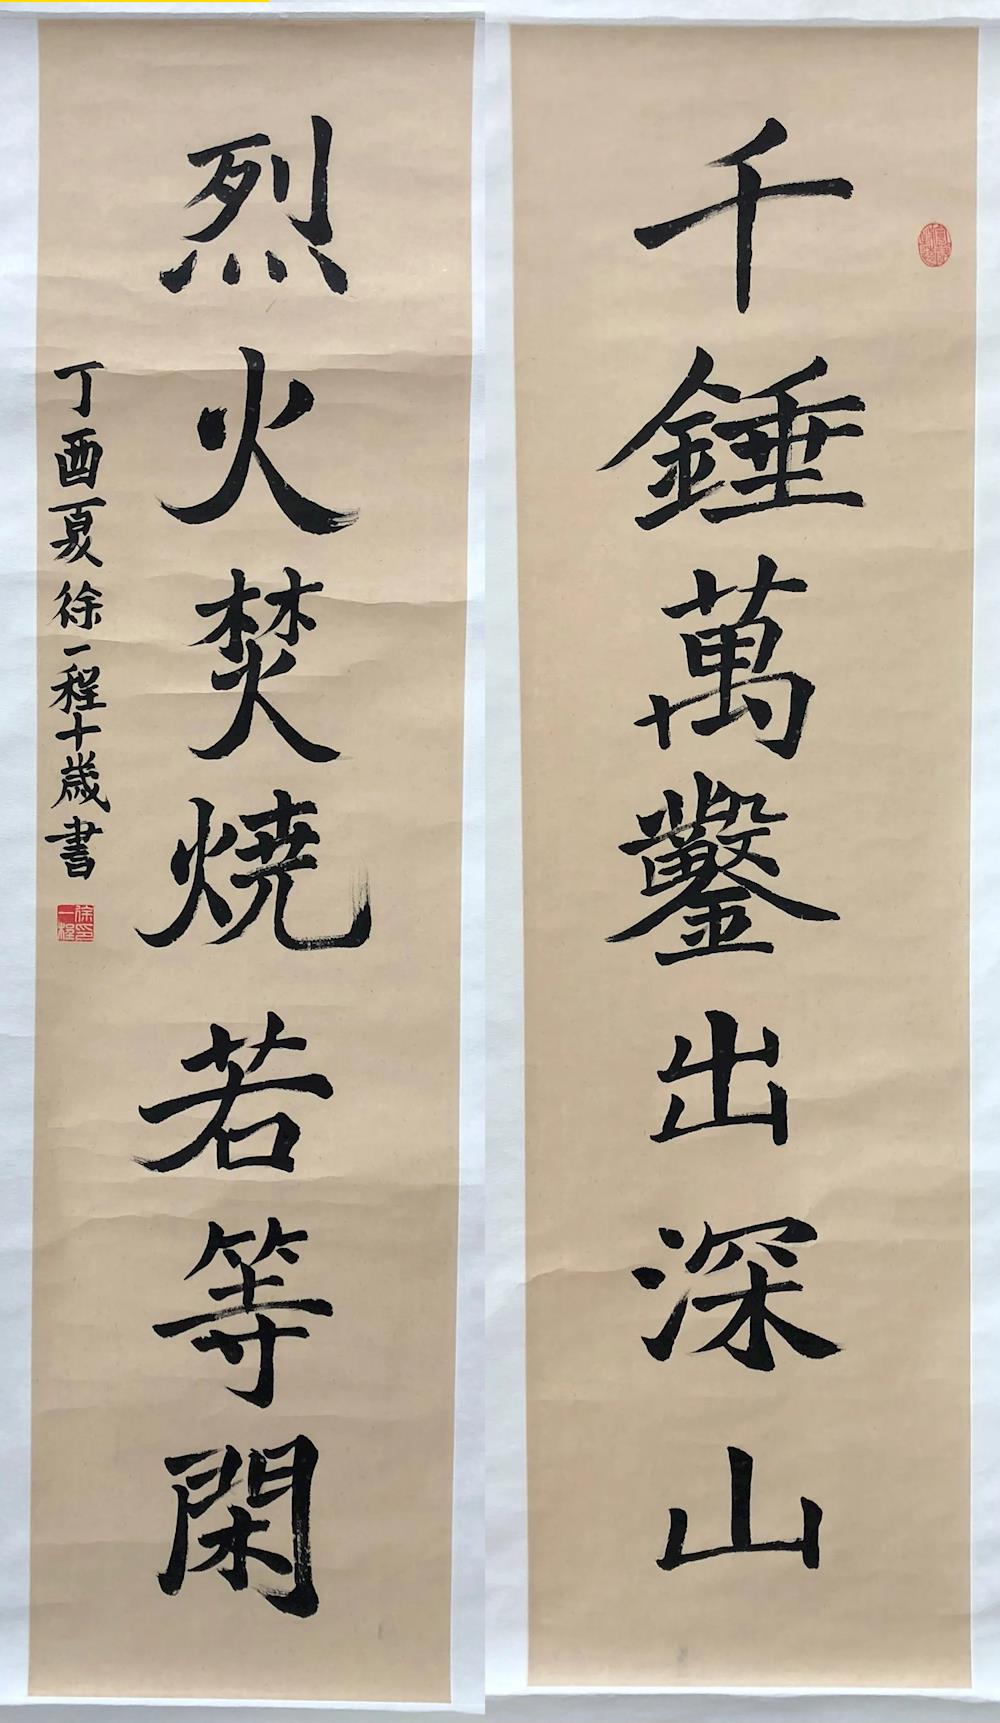 千錘萬鑿出深山
烈火焚燒若等閑
丁酉夏徐一程十歲書
徐一程印